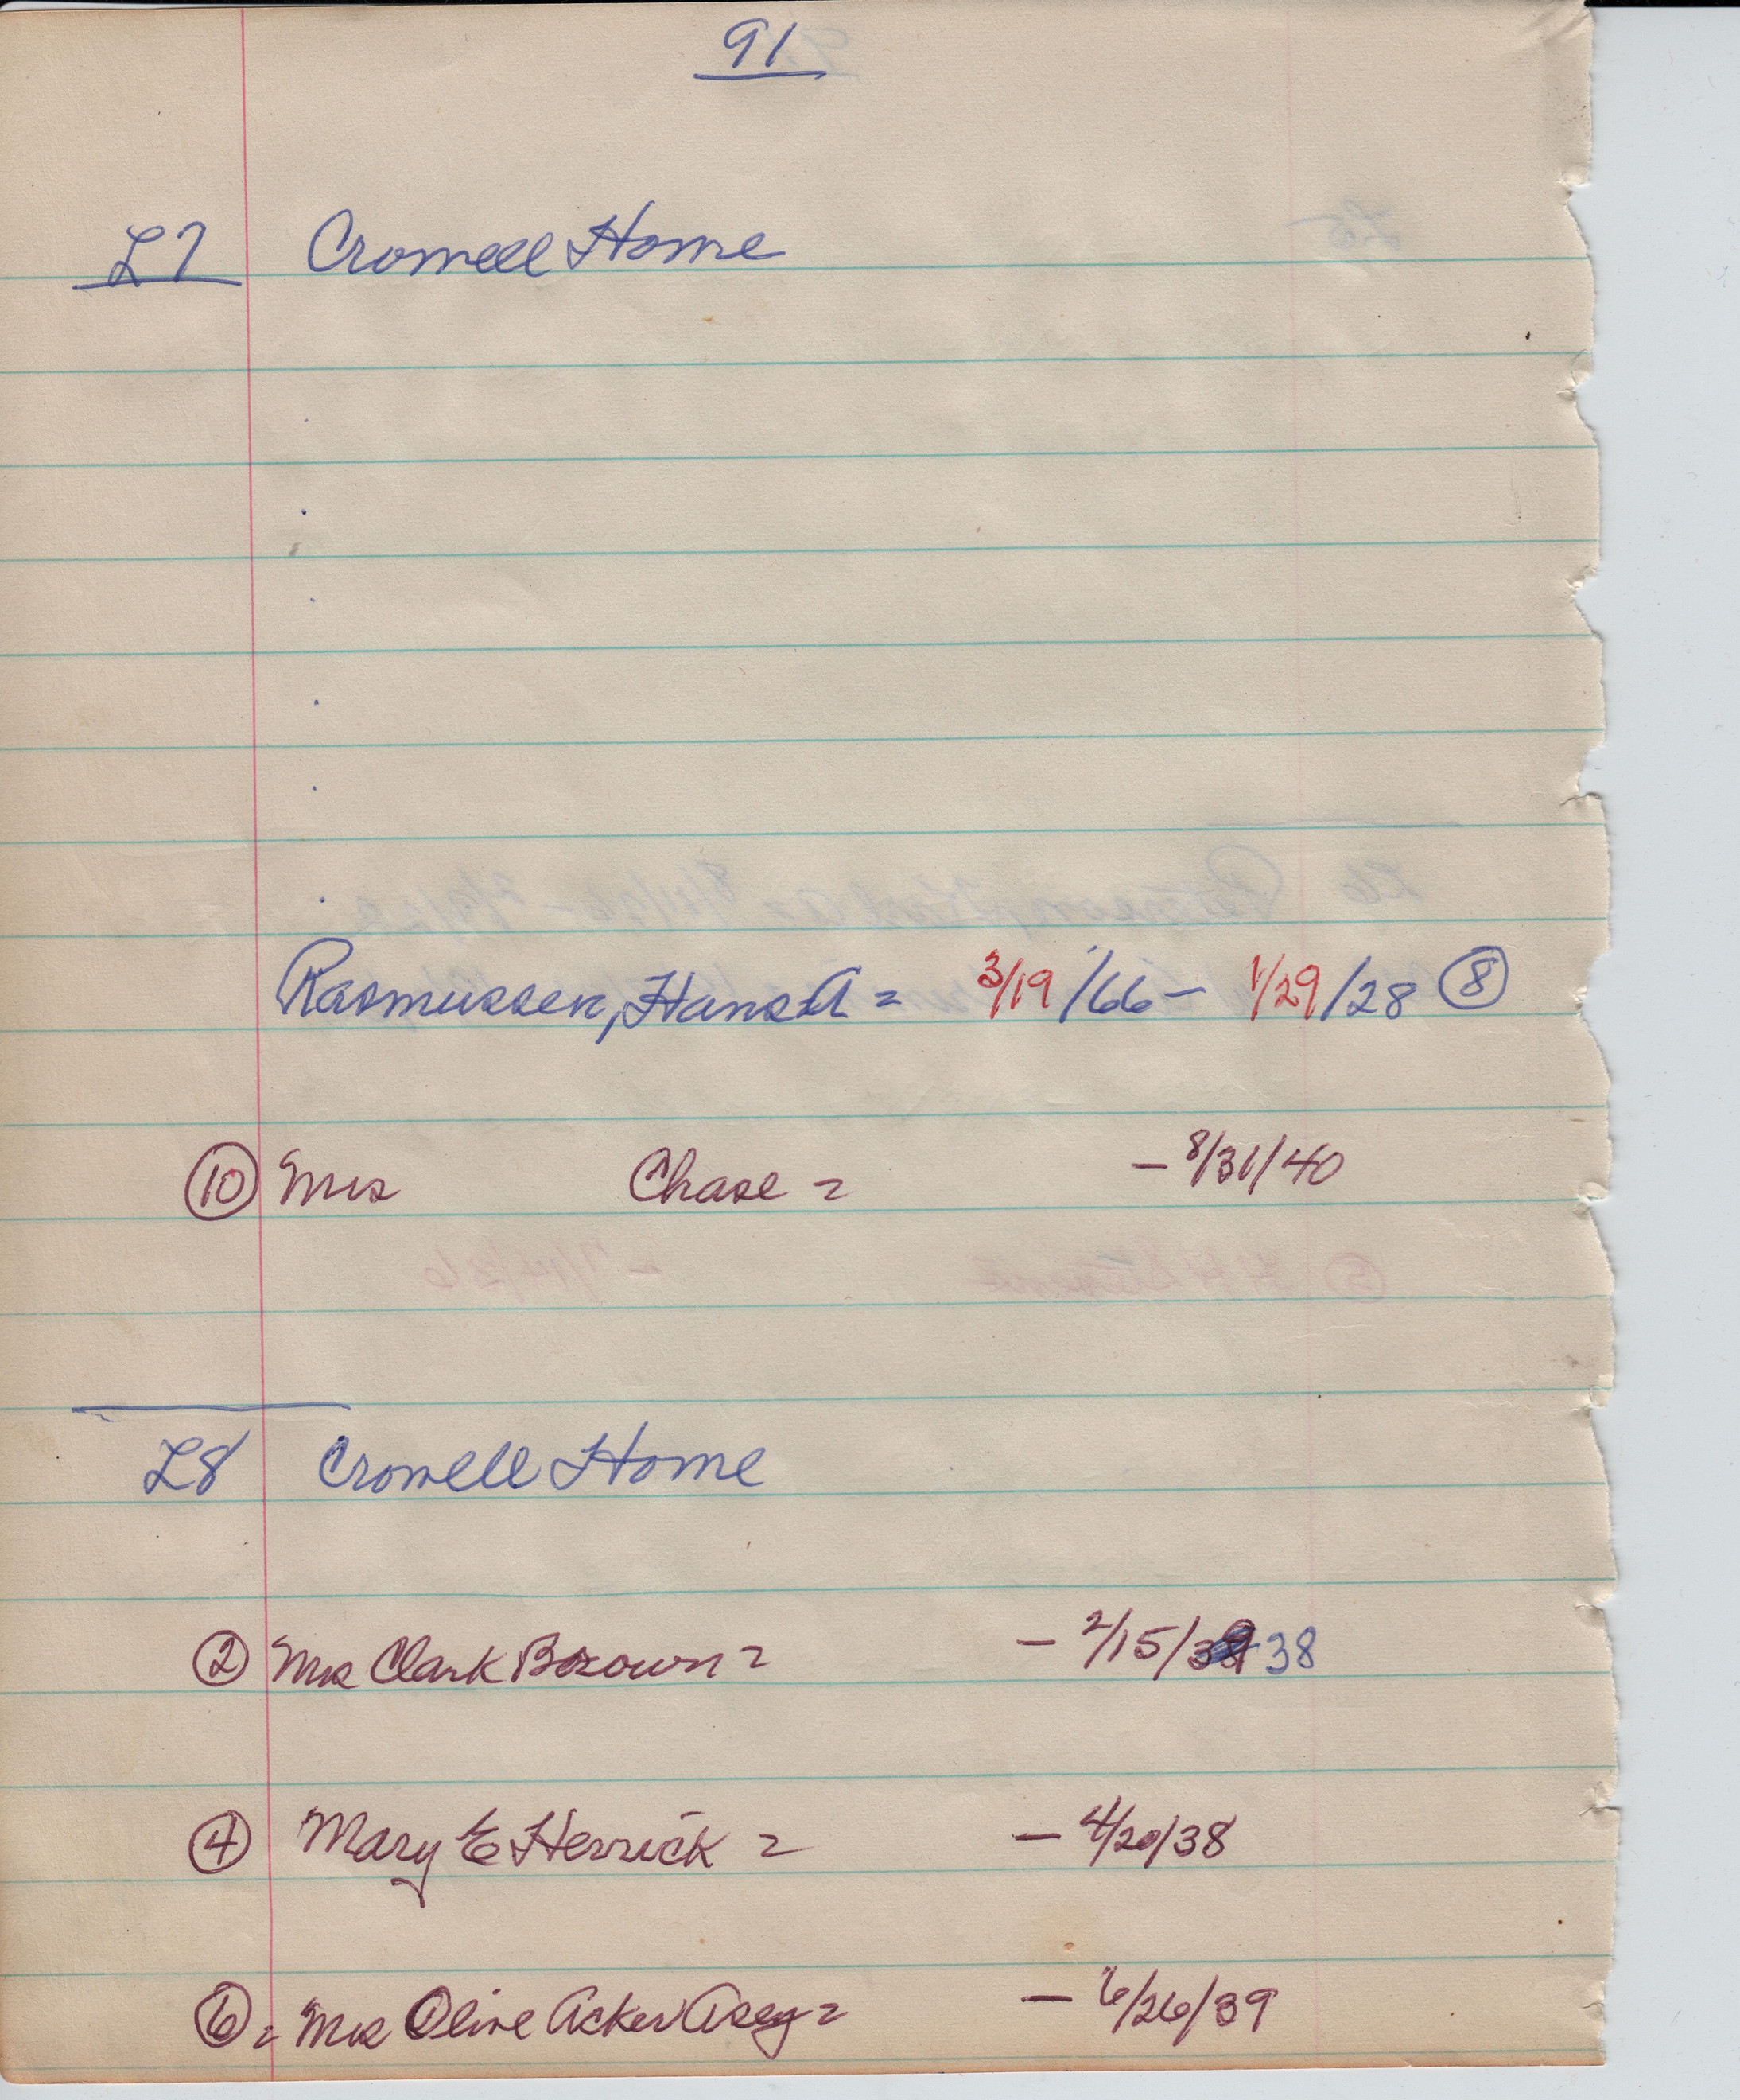 91
L7 Crowell Home
Rasmussen, Hans A = 3/19/66 - 1/29/28 ⑧
⑩ Mrs Chase = - 8/31/40
L8 Crowell Home
② Mrs Clark Brown = - 2/15/38
④ Mary E Herrick = - 4/20/38
⑥ = Mrs Olive Acker Asey = - 6/26/39